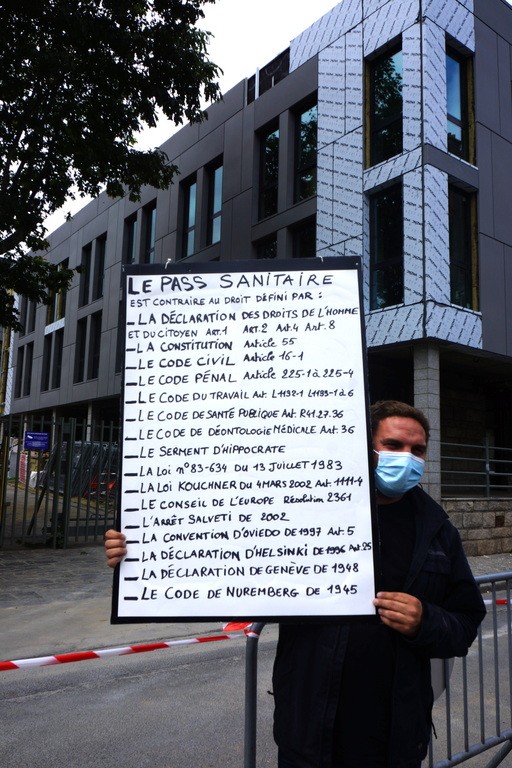 LE PASS SANITAIRE
EST CONTRAIRE AU DROIT DÉFINI PAR :
– LA DÉCLARATION DES DROITS DE L'HOMME
ET DU CITOYEN ART.1 ART.2 Art.4 Art.8
– LA CONSTITUTION Article 55
– LE CODE CIVIL Article 16-1
– LE CODE PÉNAL Article 225-1 à 225-4
– LE CODE DU TRAVAIL Art. L1132-1 L1133-1 à 6
– LE CODE DE SANTÉ PUBLIQUE Art. R41.27.36
– LE CODE DE DÉONTOLOGIE MÉDICALE Art. 36
– LE SERMENT D'HIPPOCRATE
– LA LOI n°83-634 DU 13 JUILLET 1983
– LA LOI KOUCHNER DU 4 MARS 2002 Art. 1111-4
– LE CONSEIL DE L'EUROPE Résolution 2361
– L'ARRÊT SALVETI DE 2002
– LA CONVENTION D'OVIEDO DE 1997 Art. 5
– LA DÉCLARATION D'HELSINKI DE 1996 Art. 25
– LA DÉCLARATION DE GENÈVE DE 1948
– LE CODE DE NUREMBERG DE 1945